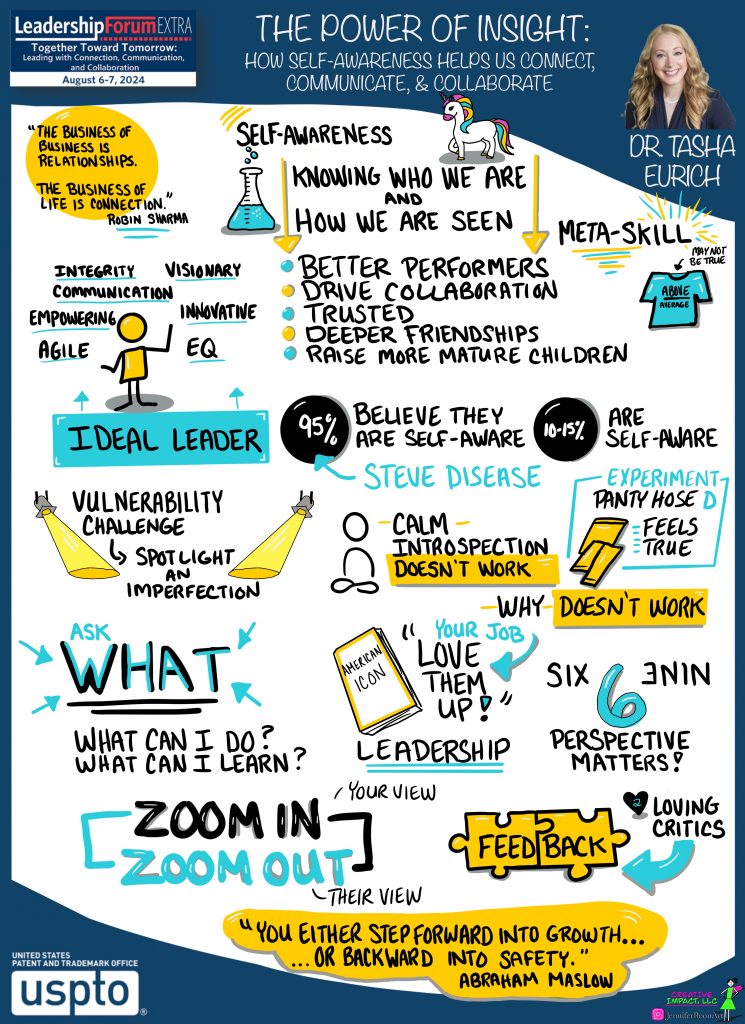 LeadershipForumEXTRA
Together Toward Tomorrow:
Leading with Connection, Communication,
and Collaboration
August 6-7, 2024
THE POWER OF INSIGHT:
HOW SELF-AWARENESS HELPS US CONNECT,
COMMUNICATE, & COLLABORATE
DR. TASHA
EURICH
"THE BUSINESS OF
BUSINESS IS
RELATIONSHIPS.
THE BUSINESS OF
LIFE IS CONNECTION."
ROBIN SHARMA
SELF-AWARENESS
KNOWING WHO WE ARE
AND
HOW WE ARE SEEN
META-SKILL
MAY NOT
BE TRUE
ABOVE
AVERAGE
BETTER PERFORMERS
DRIVE COLLABORATION
TRUSTED
DEEPER FRIENDSHIPS
RAISE MORE MATURE CHILDREN
INTEGRITY VISIONARY
COMMUNICATION
EMPOWERING INNOVATIVE
AGILE EQ
IDEAL LEADER
95% BELIEVE THEY
ARE SELF-AWARE
10-15% ARE
SELF-AWARE
STEVE DISEASE
VULNERABILITY
CHALLENGE
SPOTLIGHT
AN
IMPERFECTION
CALM
INTROSPECTION
DOESN'T WORK
EXPERIMENT
PANTY HOSE D
FEELS
TRUE
WHY DOESN'T WORK
ASK
WHAT
WHAT CAN I DO?
WHAT CAN I LEARN?
AMERICAN
ICON
YOUR JOB
"LOVE
THEM
UP!"
LEADERSHIP
SIX 6 NINE
PERSPECTIVE
MATTERS!
YOUR VIEW
ZOOM IN
ZOOM OUT
THEIR VIEW
FEEDBACK
2 LOVING
CRITICS
"YOU EITHER STEP FORWARD INTO GROWTH...
...OR BACKWARD INTO SAFETY."
ABRAHAM MASLOW
UNITED STATES
PATENT AND TRADEMARK OFFICE
uspto®
CREATIVE
IMPACT, LLC